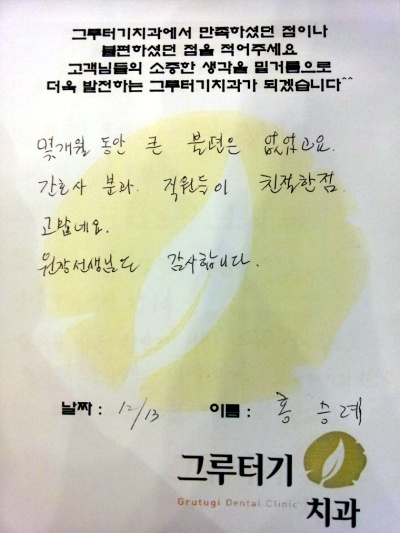 그루터기치과에서 만족하셨던 점이나
불편하셨던 점을 적어주세요
고객님들의 소중한 생각을 밑거름으로
더욱 발전하는 그루터기치과가 되겠습니다^^
몇개월 동안 큰 불편은 없었고요.
간호사 분과. 직원들이 친절한점.
고맙네요.
원장선생님도 감사합니다.
날짜 : 12/13 이름 : 홍승례
그루터기
Grutugi Dental Clinic
치과